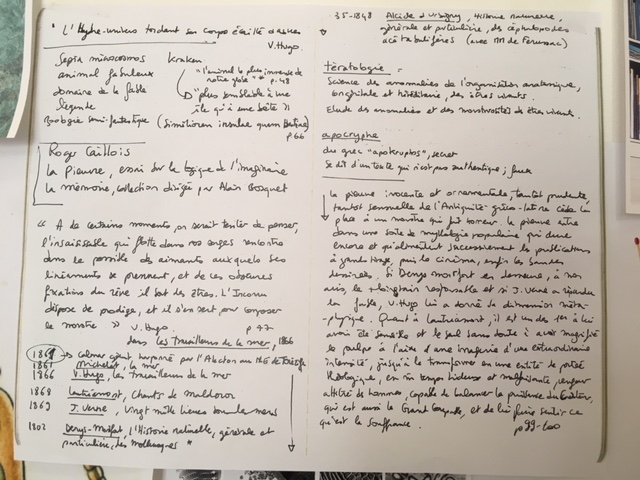 " L'Hydre-univers tordant son corps écaillé d'astres
V. Hugo.
Sepia microcosmos
animal fabuleux
domaine de la fable
légende
Zoologie semi-fantastique
Kraken
"l'animal le plus immense de
notre globe" p.48
"plus semblable à une
île qu'à une bête"
(Similiorem insulae quam bestiae)
p66
Roger Caillois
La Pieuvre, essai sur la logique de l'imaginaire
La mémoire, collection dirigée par Alain Bosquet
" A de certains moments, on serait tenté de penser,
l'insaisissable qui flotte dans nos songes rencontre
dans le possible des aimants auxquels ses
linéaments se prennent, et de ces obscures
fixations du rêve il sort des êtres. L'Inconnu
dispose du prodige, et il s'en sert pour composer
le monstre " V. Hugo. p 47
dans les travailleurs de la mer, 1866
1861 Michelet, la mer
1866 V. Hugo, les travailleurs de la mer
1868 Lautréamont, Chants de maldoror
1869 J. Verne, Vingt mille lieues sous les mers
1802 Denys-Montfort, L'Histoire naturelle, générale et
particulière, des mollusques "
35-1848 Alcide d'Orbigny, Histoire naturelle,
générale et particulière, des céphalopodes
acétabulifères (avec M de Férussac)
tératologie.
Science des anomalies de l'organisation anatomique,
congénitale et héréditaire, des êtres vivants.
Etude des anomalies et des monstruosités des êtres vivants.
apocryphe
du grec "apokruphos", secret
Se dit d'un texte qui n'est pas authentique ; faux
La pieuvre innocente et ornementale, tantôt prudente,
tantôt sensuelle de l'Antiquité gréco-latine cède la
place à un monstre qui fait horreur. La pieuvre entre
dans une sorte de mythologie populaire qui dure
encore et qu'alimentent successivement les publications
à grands tirages, puis le cinéma, enfin les bandes
dessinées. Si Denys Montfort en demeure, à mon
avis, le plus responsable et si J. Verne a répandu
la fable, V. Hugo lui a donné sa dimension méta-
physique. Quant à Lautréamont, il est un des 1er à lui
avoir été sensible et le seul sans doute à avoir magnifié
le poulpe à l'aide d'une imagerie d'une extraordinaire
intensité, jusqu'à le transformer en une entité de portée
théologique, en un temps hideux et malfaisante,
altérée de hommes, capable de balancer la puissance du Créateur,
qui est aussi le Grand Coupable, et de lui faire sentir ce
qu'est la souffrance. p99-100